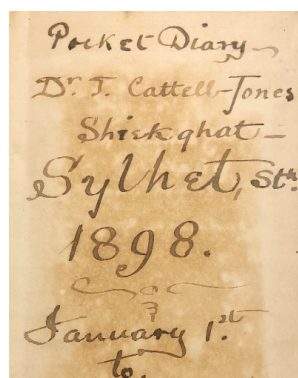 Pocket Diary
Dr. T. Cattell-Jones
Shiekghat –
Sylhet, Sth.
1898.
January 1.st
to.